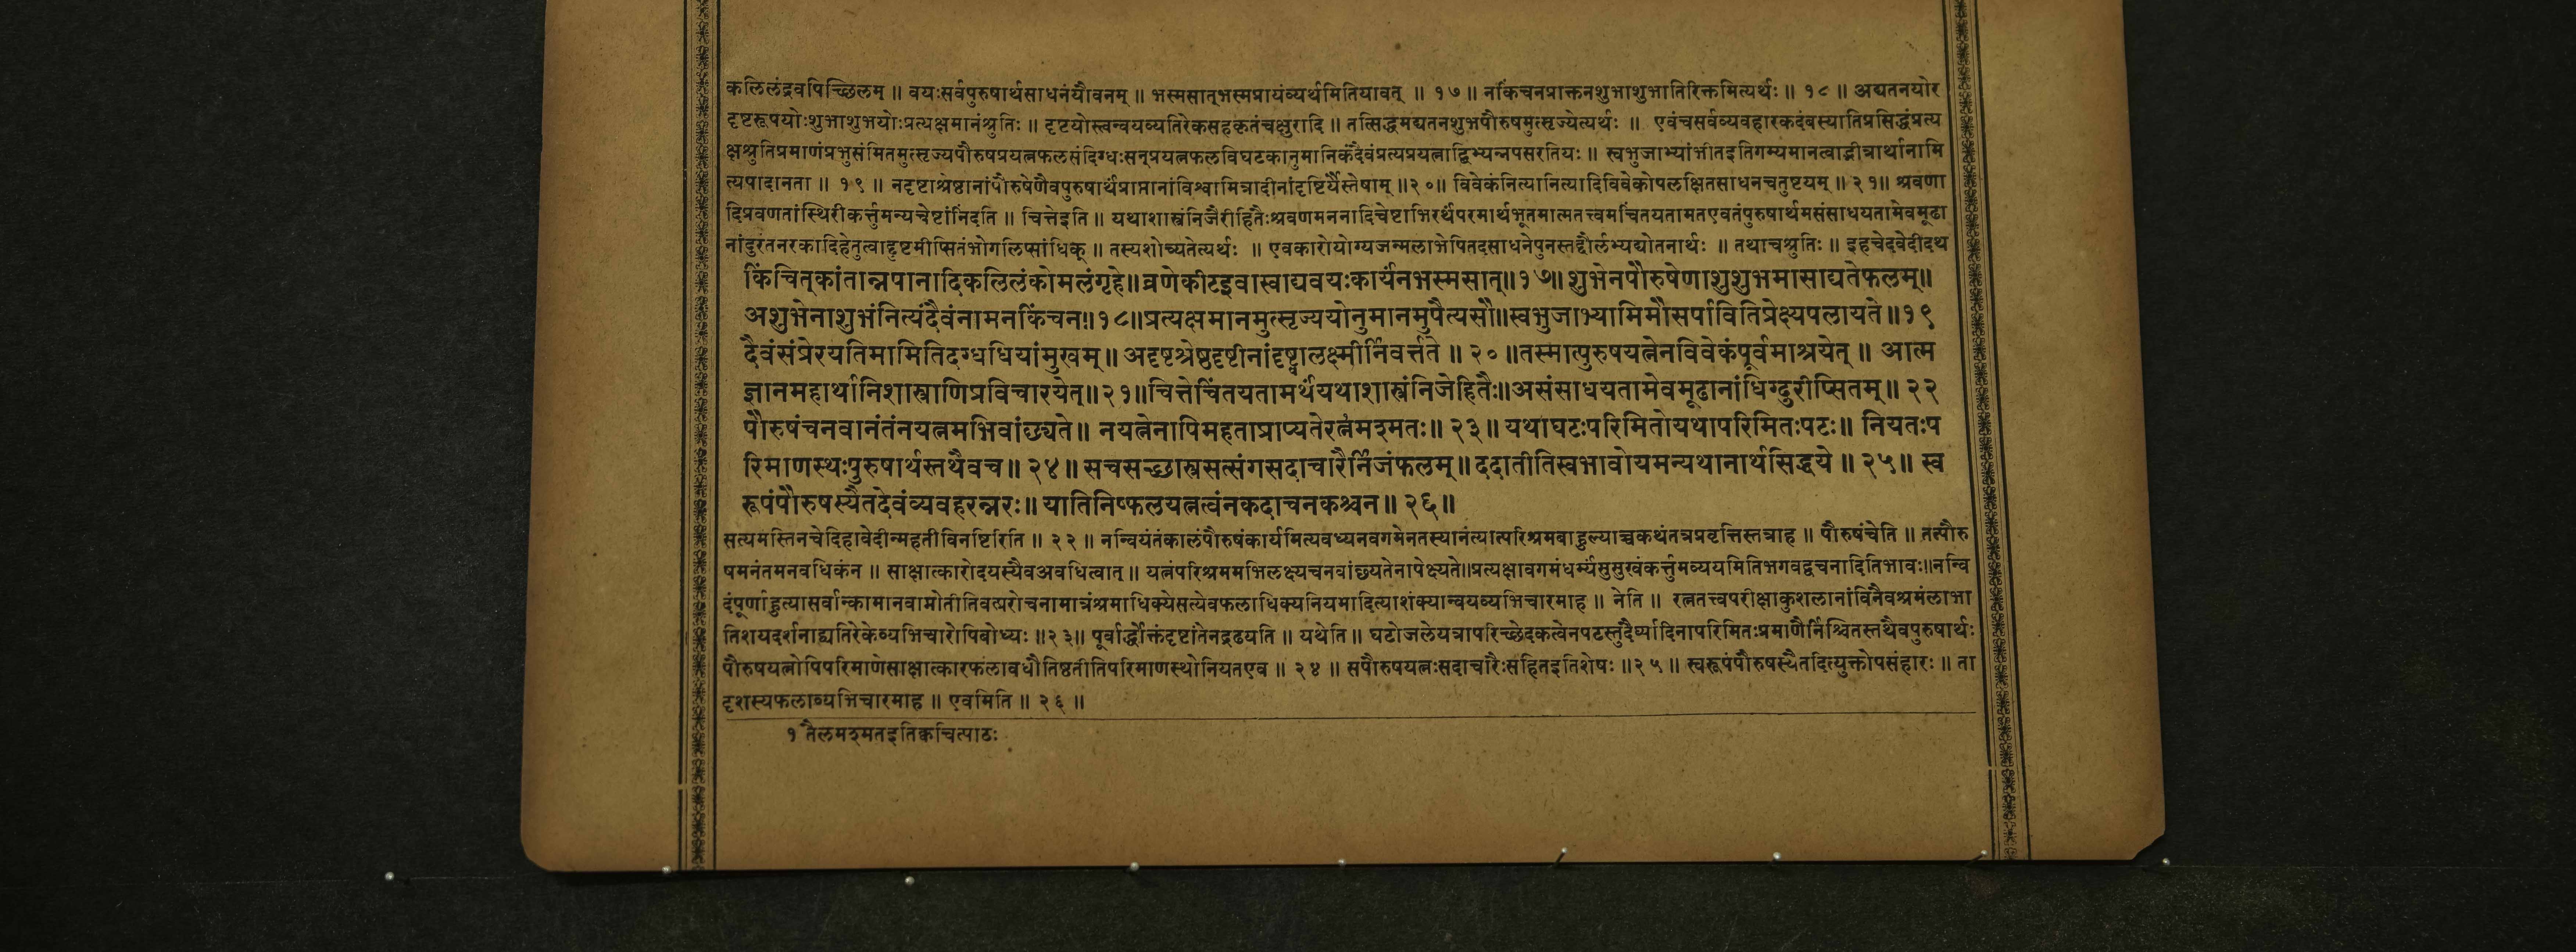 कलिलंद्रवपिच्छिलम् ॥ वयःसर्वपुरुषार्थसाधनंयौवनम् ॥ भस्मसात्भस्मप्रायंव्यर्थमितियावत् ॥ १७ ॥ नकिंचनप्राक्तनशुभाशुभातिरिक्तमित्यर्थः ॥ १८ ॥ अद्यतनयोर
दृष्टरूपयोःशुभाशुभयोःप्रत्यक्षमानंश्रुतिः ॥ दृष्टयोस्त्वन्वयव्यतिरेकसहकृतंचक्षुरादि ॥ तत्सिद्धमद्यतनशुभपौरुषमुत्सृज्येत्यर्थः ॥ एवंचसर्वव्यवहारकदंबस्यातिप्रसिद्धंप्रत्य
क्षश्रुतिप्रमाणंप्रभुसंमितमुत्सृज्यपौरुषप्रयत्नफलसंदिग्धःसन्प्रयत्नफलविघटकानुमानिकंदैवंप्रत्यप्रयत्नाद्बिभ्यन्नपसरतियः ॥ स्वभुजाभ्यांभीतइतिगम्यमानत्वाद्भीत्रार्थानामि
त्यपादानता ॥ १९ ॥ नदृष्टाश्रेष्ठानांपौरुषेणैवपुरुषार्थप्राप्तानांविश्वामित्रादीनांदृष्टिर्यैस्तेषाम् ॥२०॥ विवेकंनित्यानित्यादिविवेकोपलक्षितसाधनचतुष्टयम् ॥ २१॥ श्रवणा
दिप्रवणतांस्थिरीकर्त्तुमन्यचेष्टांनिंदति ॥ चित्तेइति ॥ यथाशास्त्रंनिजैरीहितैःश्रवणमननादिचेष्टाभिरर्थंपरमार्थभूतमात्मतत्त्वमचिंतयतामतएवतंपुरुषार्थमसंसाधयतामेवमूढा
नांदुरंतनरकादिहेतुत्वाद्दुष्टमीप्सितंभोगलिप्सांधिक् ॥ तस्यशोच्यतेत्यर्थः ॥ एवकारोयोग्यजन्मलाभेपितदसाधनेपुनस्तद्दौर्लभ्यद्योतनार्थः ॥ तथाचश्रुतिः ॥ इहचेदवेदीदथ
किंचित्कांतान्नपानादिकलिलंकोमलंगृहे॥व्रणेकीटइवास्वाद्यवयःकार्यंनभस्मसात्॥१७॥शुभेनपौरुषेणाशुशुभमासाद्यतेफलम्॥
अशुभेनाशुभंनित्यंदैवंनामनकिंचन॥१८॥प्रत्यक्षमानमुत्सृज्ययोनुमानमुपैत्यसौ॥स्वभुजाभ्यामिमौसर्पावितिप्रेक्ष्यपलायते॥१९
दैवंसंप्रेरयतिमामितिदग्धधियांमुखम्॥ अदृष्टश्रेष्ठदृष्टीनांदृष्ट्वालक्ष्मीर्निवर्त्तते ॥ २० ॥तस्मात्पुरुषयत्नेनविवेकंपूर्वमाश्रयेत् ॥ आत्म
ज्ञानमहार्थानिशास्त्राणिप्रविचारयेत्॥२१॥चित्तेचिंतयतामर्थंयथाशास्त्रंनिजेहितैः॥असंसाधयतामेवमूढानांधिग्दुरीप्सितम्॥ २२
पौरुषंचनवानंतंनयत्नमभिवांछ्यते॥ नयत्नेनापिमहताप्राप्यतेरत्नंमश्मतः॥ २३॥ यथाघटःपरिमितोयथापरिमितःपटः॥ नियतःप
रिमाणस्थःपुरुषार्थस्तथैवच॥ २४॥ सचसच्छास्त्रसत्संगसदाचारैर्निजंफलम्॥ददातीतिस्वभावोयमन्यथानार्थसिद्धये ॥ २५॥ स्व
रूपंपौरुषस्यैतदेवंव्यवहरन्नरः॥ यातिनिष्फलयत्नत्वंनकदाचनकश्चन॥ २६॥
सत्यमस्तिनचेदिहावेदीन्महतीविनष्टिरिति ॥ २२ ॥ नन्वियंतंकालंपौरुषंकार्यमित्यवध्यनवगमेनतस्यानंत्यात्परिश्रमबाहुल्याच्चकथंतत्रप्रवृत्तिस्तत्राह ॥ पौरुषंचेति ॥ तत्पौरु
षमनंतमनवधिकंन ॥ साक्षात्कारोदयस्यैवअवधित्वात् ॥ यत्नंपरिश्रममभिलक्ष्यचनवांछ्यतेनापेक्ष्यते॥प्रत्यक्षावगमंधर्म्यंसुसुखंकर्त्तुमव्ययमितिभगवद्वचनादितिभावः॥नन्वि
दंपूर्णाहुत्यासर्वान्कामानवाप्नोतीतिवत्प्ररोचनामात्रंश्रमाधिक्येसत्येवफलाधिक्यनियमादित्याशंक्यान्वयव्यभिचारमाह ॥ नेति ॥ रत्नतत्त्वपरीक्षाकुशलानांविनैवश्रमंलाभा
तिशयदर्शनाद्व्यतिरेकेव्यभिचारोपिबोध्यः ॥२३॥ पूर्वार्द्धोक्तंदृष्टांतेनद्रढयति ॥ यथेति ॥ घटोजलेयत्रापरिच्छेदकत्वेनपटस्तुदैर्घ्यादिनापरिमितःप्रमाणैर्निश्चितस्तथैवपुरुषार्थः
पौरुषयत्नोपिपरिमाणेसाक्षात्कारफलावधौतिष्ठतीतिपरिमाणस्थोनियतएव ॥ २४ ॥ सपौरुषयत्नःसदाचारैःसहितइतिशेषः ॥२५॥ स्वरूपंपौरुषस्यैतदित्युक्तोपसंहारः ॥ ता
दृशस्यफलाव्यभिचारमाह ॥ एवमिति ॥ २६ ॥
१ तैलमश्मतइतिक्वचित्पाठः